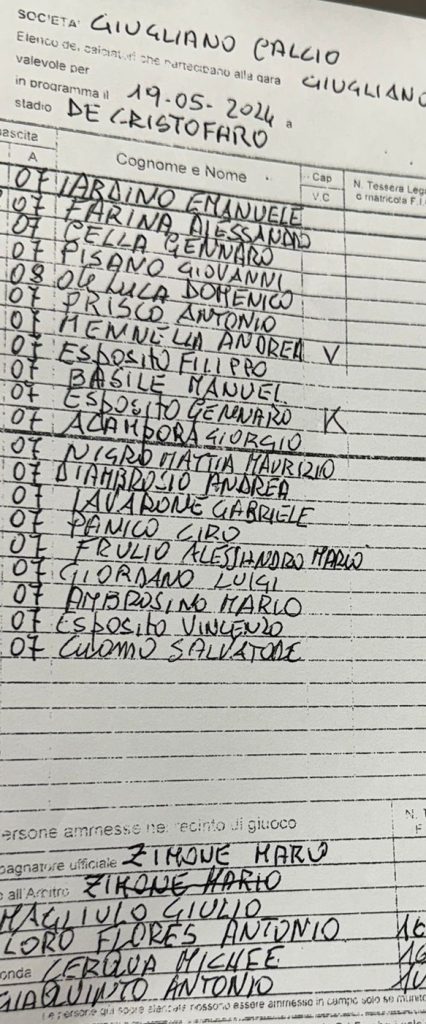 SOCIETA' GIUGLIANO CALCIO
Elenco dei calciatori che partecipano alla gara GIUGLIANO
valevole per
in programma il 19-05-2024 a
stadio DE CRISTOFARO
ascita
A Cognome e Nome Cap V.C N. Tessera Lega o matricola F.I.
07 IARDINO EMANUELE
07 FARINA ALESSANDRO
07 CELLA GENNARO
07 PISANO GIOVANNI
08 DE LUCA DOMENICO
07 PRISCO ANTONIO
07 MENNELLA ANDREA V
07 ESPOSITO FILIPPO
07 BASILE MANUEL
07 ESPOSITO GENNARO K
07 ACAMPORA GIORGIO
07 NIGRO MATTIA MAURIZIO
07 DIAMBROSIO ANDREA
07 IAVARONE GABRIELE
07 PANICO CIRO
07 FRULIO ALESSANDRO MARIO
07 GIORDANO LUIGI
07 AMBROSINO MARIO
07 ESPOSITO VINCENZO
07 CUOMO SALVATORE
ersone ammesse nel recinto di giuoco N.
pagnatore ufficiale ZIMONE MARIO
e all'Arbitro ZIMONE MARIO
MAGLIULO GIULIO
LORO FLORES ANTONIO 16
onda CERQUA MICHELE 16
GIAQUINTO ANTONIO
Le persone già sopra elencate possono essere ammesse in campo solo se munite